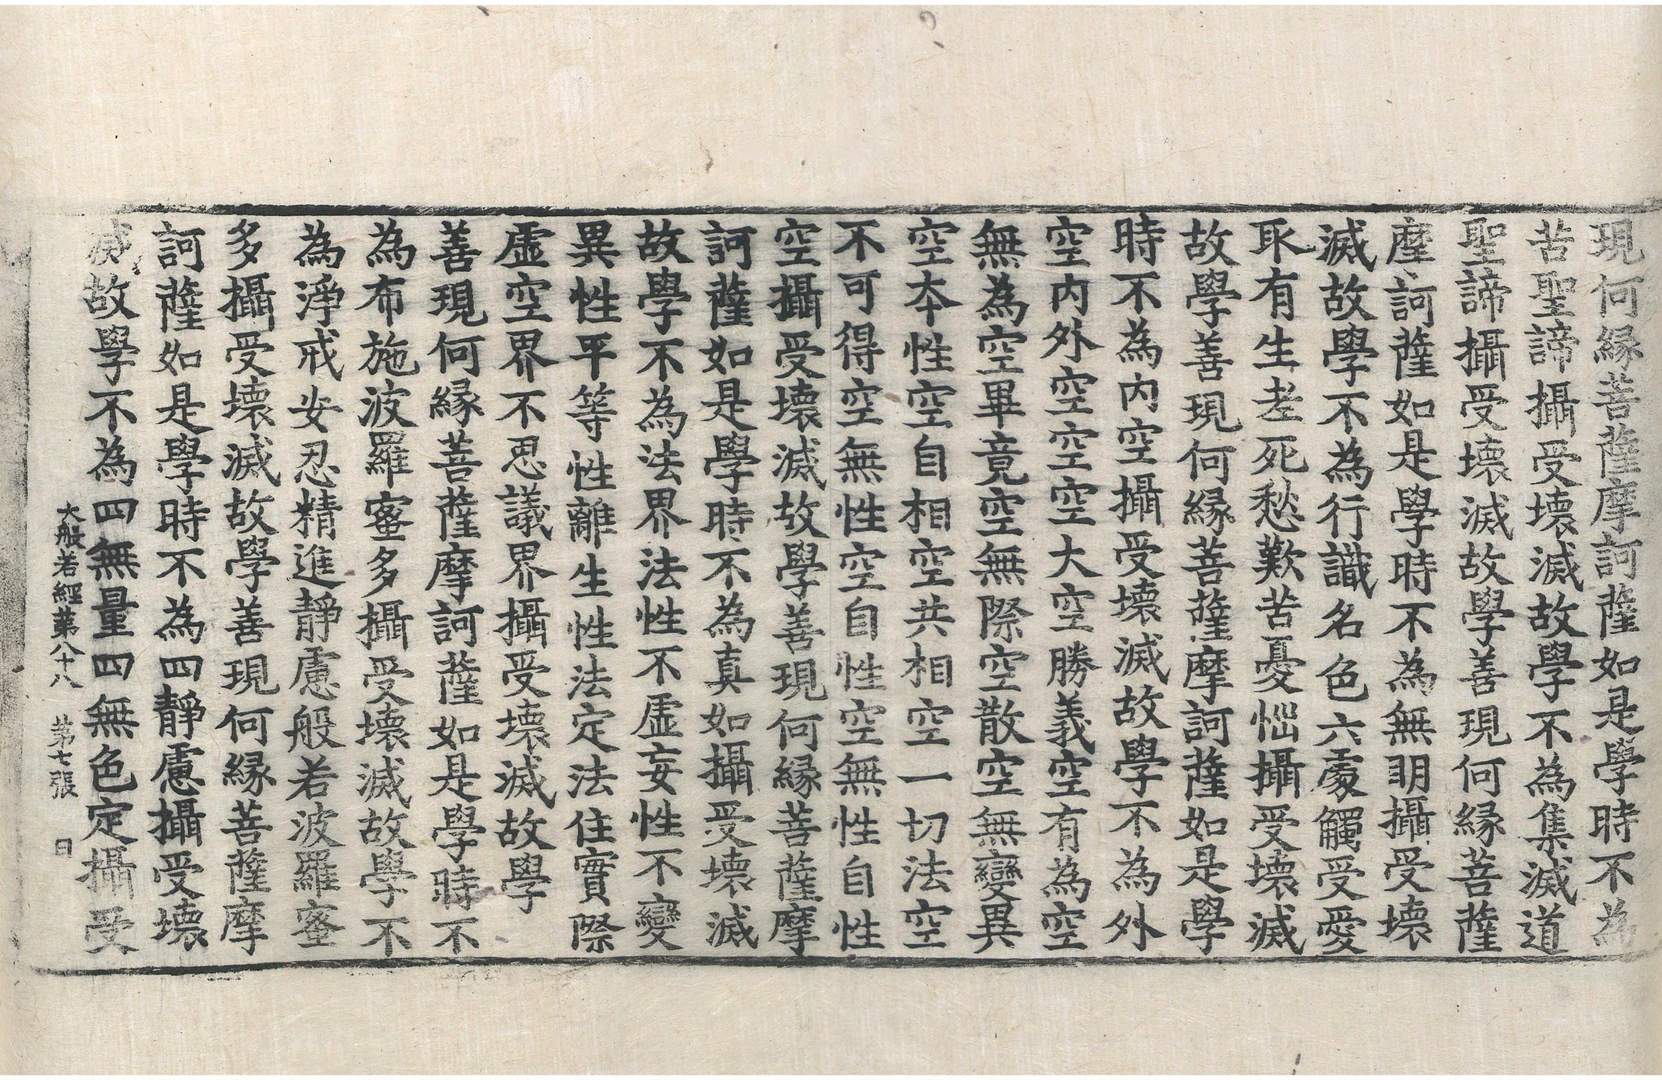 現何緣菩薩摩訶薩如是學時不為
苦聖諦攝受壞滅故學不為集滅道
聖諦攝受壞滅故學善現何緣菩薩
摩訶薩如是學時不為無明攝受壞
滅故學不為行識名色六處觸受愛
取有生老死愁歎苦憂惱攝受壞滅
故學善現何緣菩薩摩訶薩如是學
時不為內空攝受壞滅故學不為外
空內外空空空大空勝義空有為空
無為空畢竟空無際空散空無變異
空本性空自相空共相空一切法空
不可得空無性空自性空無性自性
空攝受壞滅故學善現何緣菩薩摩
訶薩如是學時不為真如攝受壞滅
故學不為法界法性不虛妄性不變
異性平等性離生性法定法住實際
虛空界不思議界攝受壞滅故學
善現何緣菩薩摩訶薩如是學時不
為布施波羅蜜多攝受壞滅故學不
為淨戒安忍精進靜慮般若波羅蜜
多攝受壞滅故學善現何緣菩薩摩
訶薩如是學時不為四靜慮攝受壞
滅故學不為四無量四無色定攝受
大般若經第八十八 第七張 日